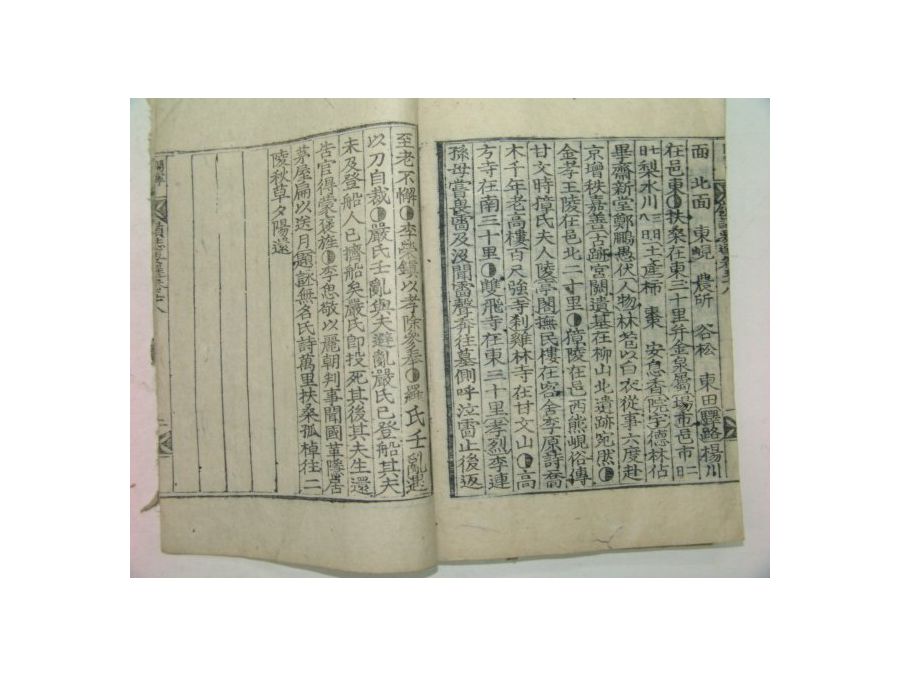 面 北面 東峴 農所 谷松 東田驛路楊川
在邑東扶桑在東三十里幷金泉屬場市邑市二日
七梨水川三八明土產柿 棗 安息香院宇德林佔
畢齋新堂鄭鵬愚伏人物林芑以白衣從事六度赴
京增秩嘉善古跡宮闕遺基在柳山北遺跡宛然
金孝王陵在邑北二十里獐陵在邑西熊峴俗傳
甘文時獐氏夫人陵亭閣撫民樓在客舍李原詩喬
木千年老高樓百尺強寺刹雞林寺在甘文山高
方寺在南三十里雙飛寺在東三十里孝烈李連
孫母嘗畏雷及沒聞雷聲奔往墓側呼泣雷止後返
至老不懈李榮鎭以孝除參奉羅氏壬亂遇
以刀自裁嚴氏壬亂與夫避亂嚴氏已登船其夫
未及登船人已擠船矣嚴氏卽投死其後其夫生還
告官得蒙褒旌李思敬以麗朝判事聞國革隱居
茅屋扁以送月題詠無名氏詩萬里扶桑孤棹往二
陵秋草夕陽還